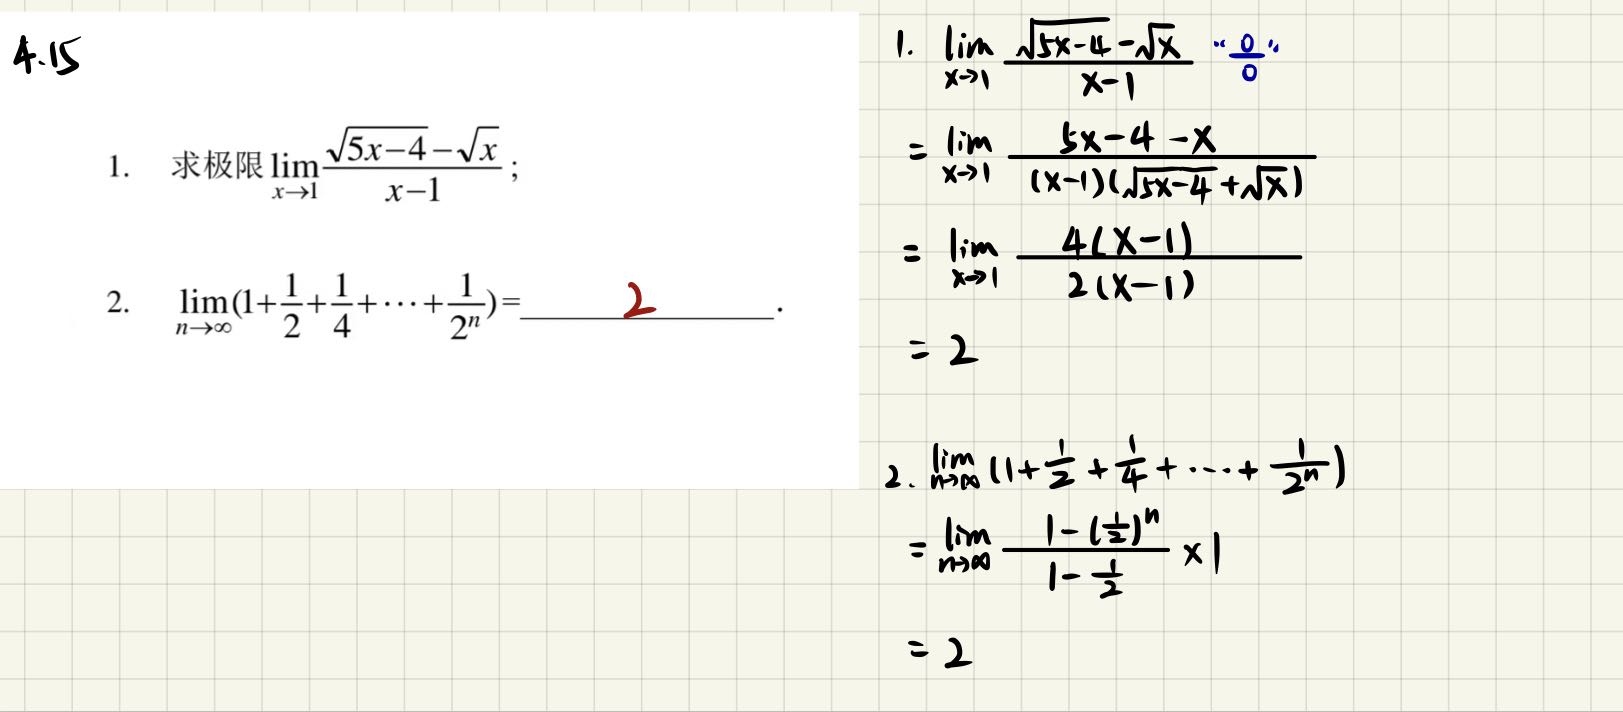 4.15
1. 求极限 lim_{x→1} (√(5x−4) − √x)/(x−1) ;
2. lim_{n→∞} (1+1/2+1/4+⋯+1/2^n) = 2 .
1. lim_{x→1} (√(5x−4) − √x)/(x−1) “0/0”
= lim_{x→1} (5x−4−x)/((x−1)(√(5x−4)+√x))
= lim_{x→1} 4(x−1)/2(x−1)
= 2
2. lim_{n→∞} (1+1/2+1/4+⋯+1/2^n)
= lim_{n→∞} (1−(1/2)^n)/(1−1/2) ×1
= 2